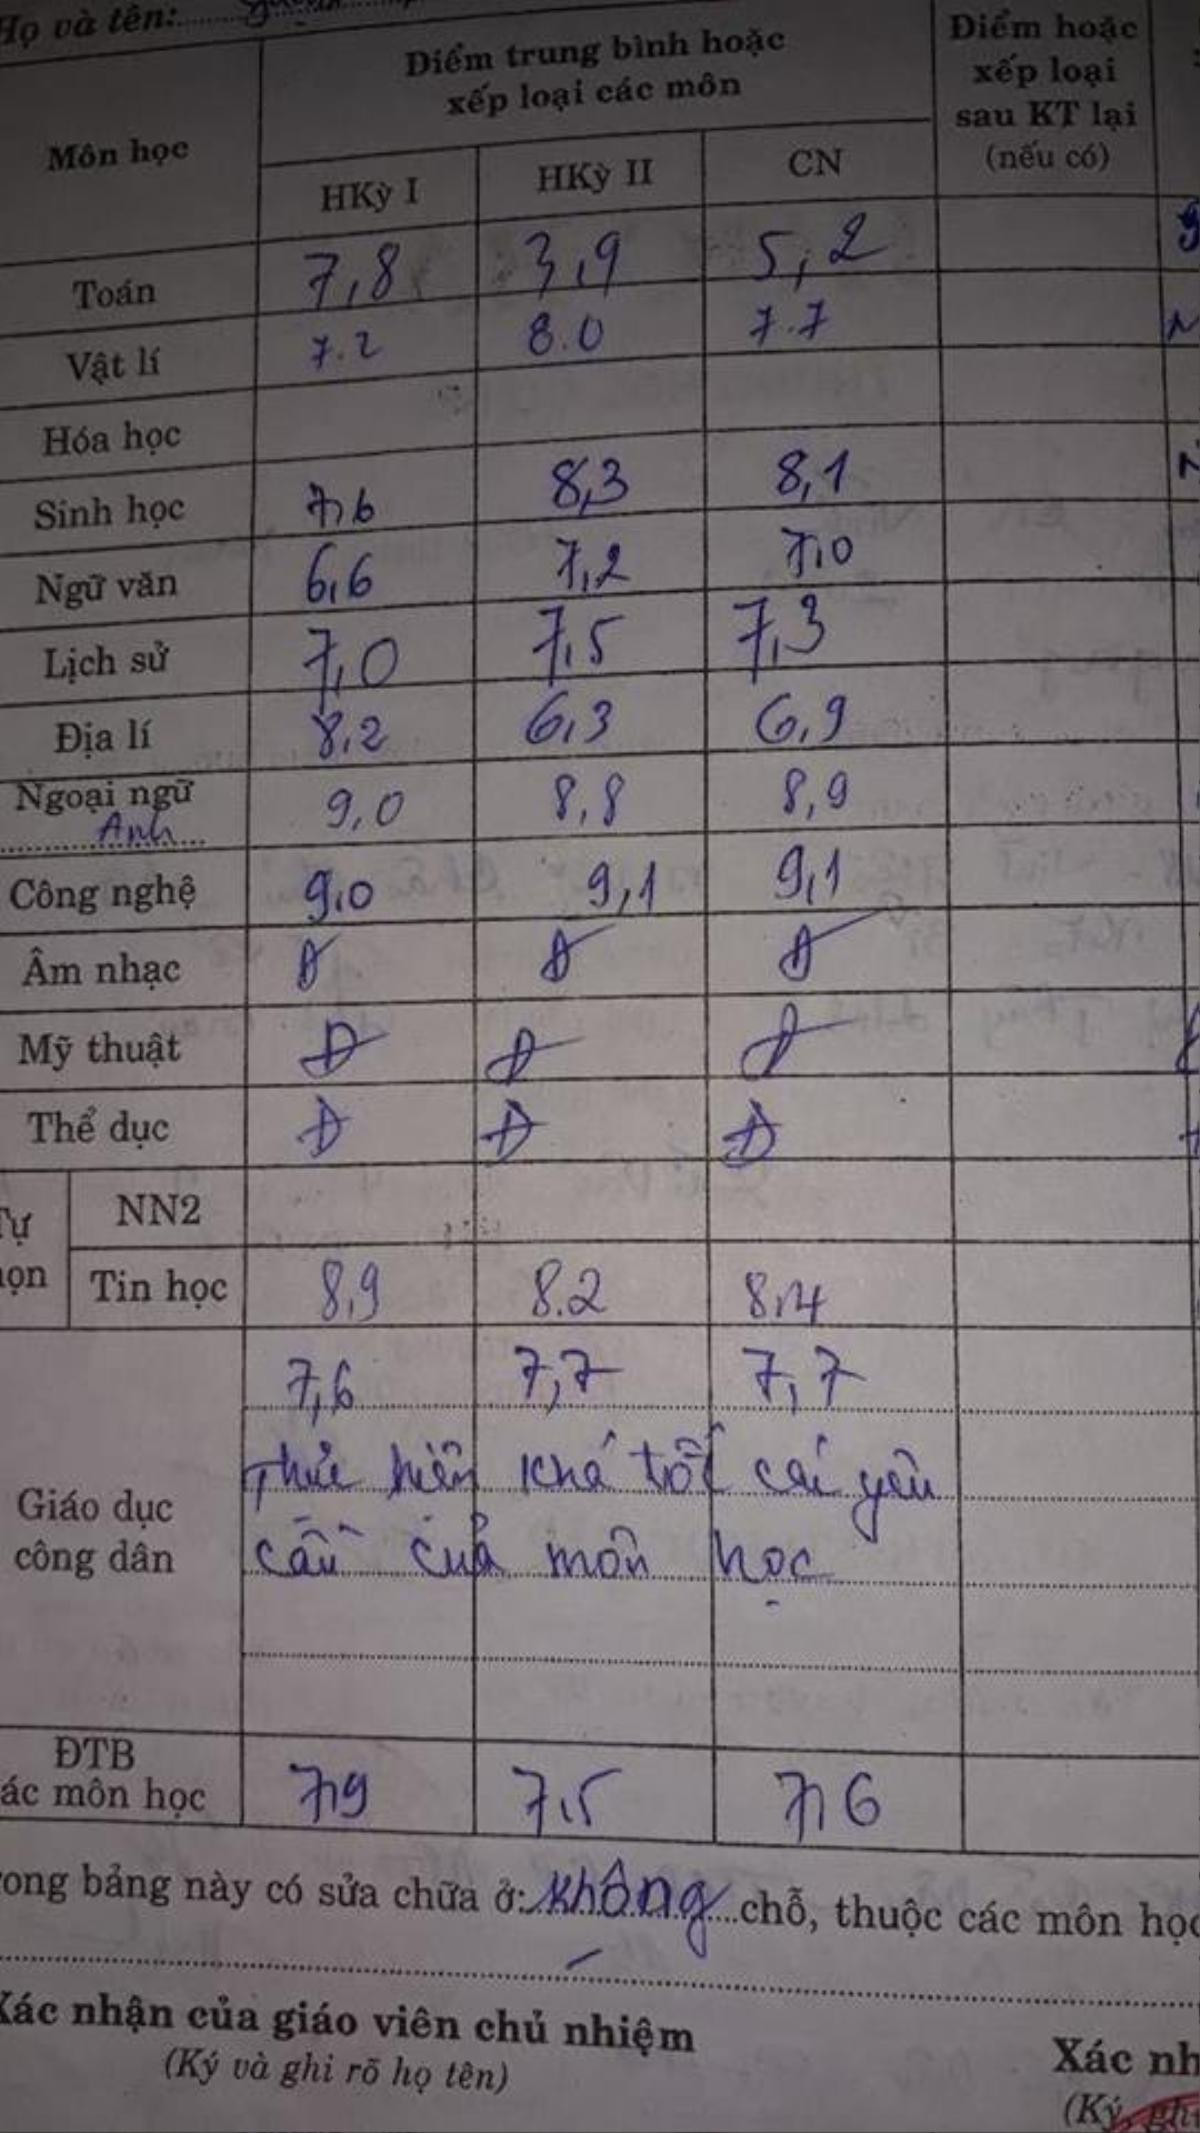 Họ và tên:
Môn học
Điểm trung bình hoặc
xếp loại các môn
Điểm hoặc
xếp loại
sau KT lại
(nếu có)
HKỳ I HKỳ II CN
Toán 7,8 3,9 5,2
Vật lí 7.2 8.0 7.7
Hóa học
Sinh học 7,6 8,3 8,1
Ngữ văn 6,6 7,2 7,0
Lịch sử 7,0 7,5 7,3
Địa lí 8,2 6,3 6,9
Ngoại ngữ 9,0 8,8 8,9
Anh
Công nghệ 9,0 9,1 9,1
Âm nhạc Đ Đ Đ
Mỹ thuật Đ Đ Đ
Thể dục Đ Đ Đ
Tự
NN2
Tin học 8,9 8.2 8,4
7,6 7,7 7,7
Thực hiện khá tốt các yêu
Giáo dục
công dân
cầu của môn học
ĐTB
các môn học 7,9 7,5 7,6
rong bảng này có sửa chữa ở: không chỗ, thuộc các môn học
Xác nhận của giáo viên chủ nhiệm
(Ký và ghi rõ họ tên)
Xác nh
(Ký, ghi